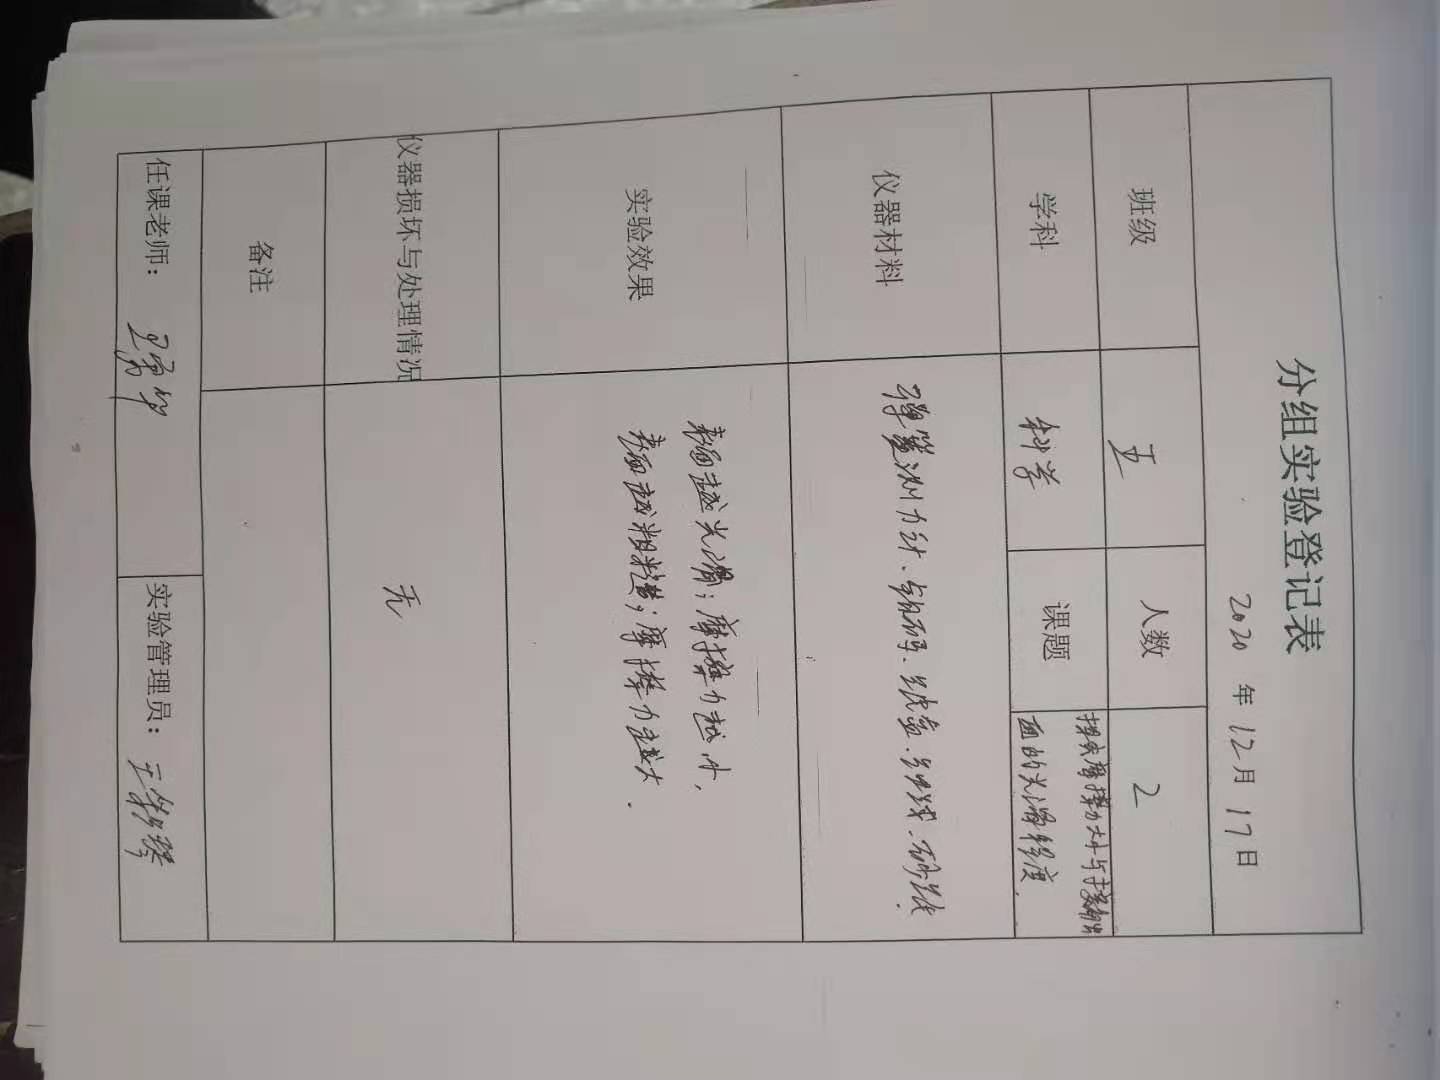 分组实验登记表
2020 年 12 月 17 日
班级 五 人数 2
学科 科学 课题 探究摩擦力大小与接触
面的光滑程度
仪器材料 弹簧测力计、钩码、纸盒、细线、砂纸
实验效果 表面越光滑；摩擦力越小，
表面越粗糙；摩擦力越大．
仪器损坏与处理情况 无
备注
任课老师： 实验管理员：